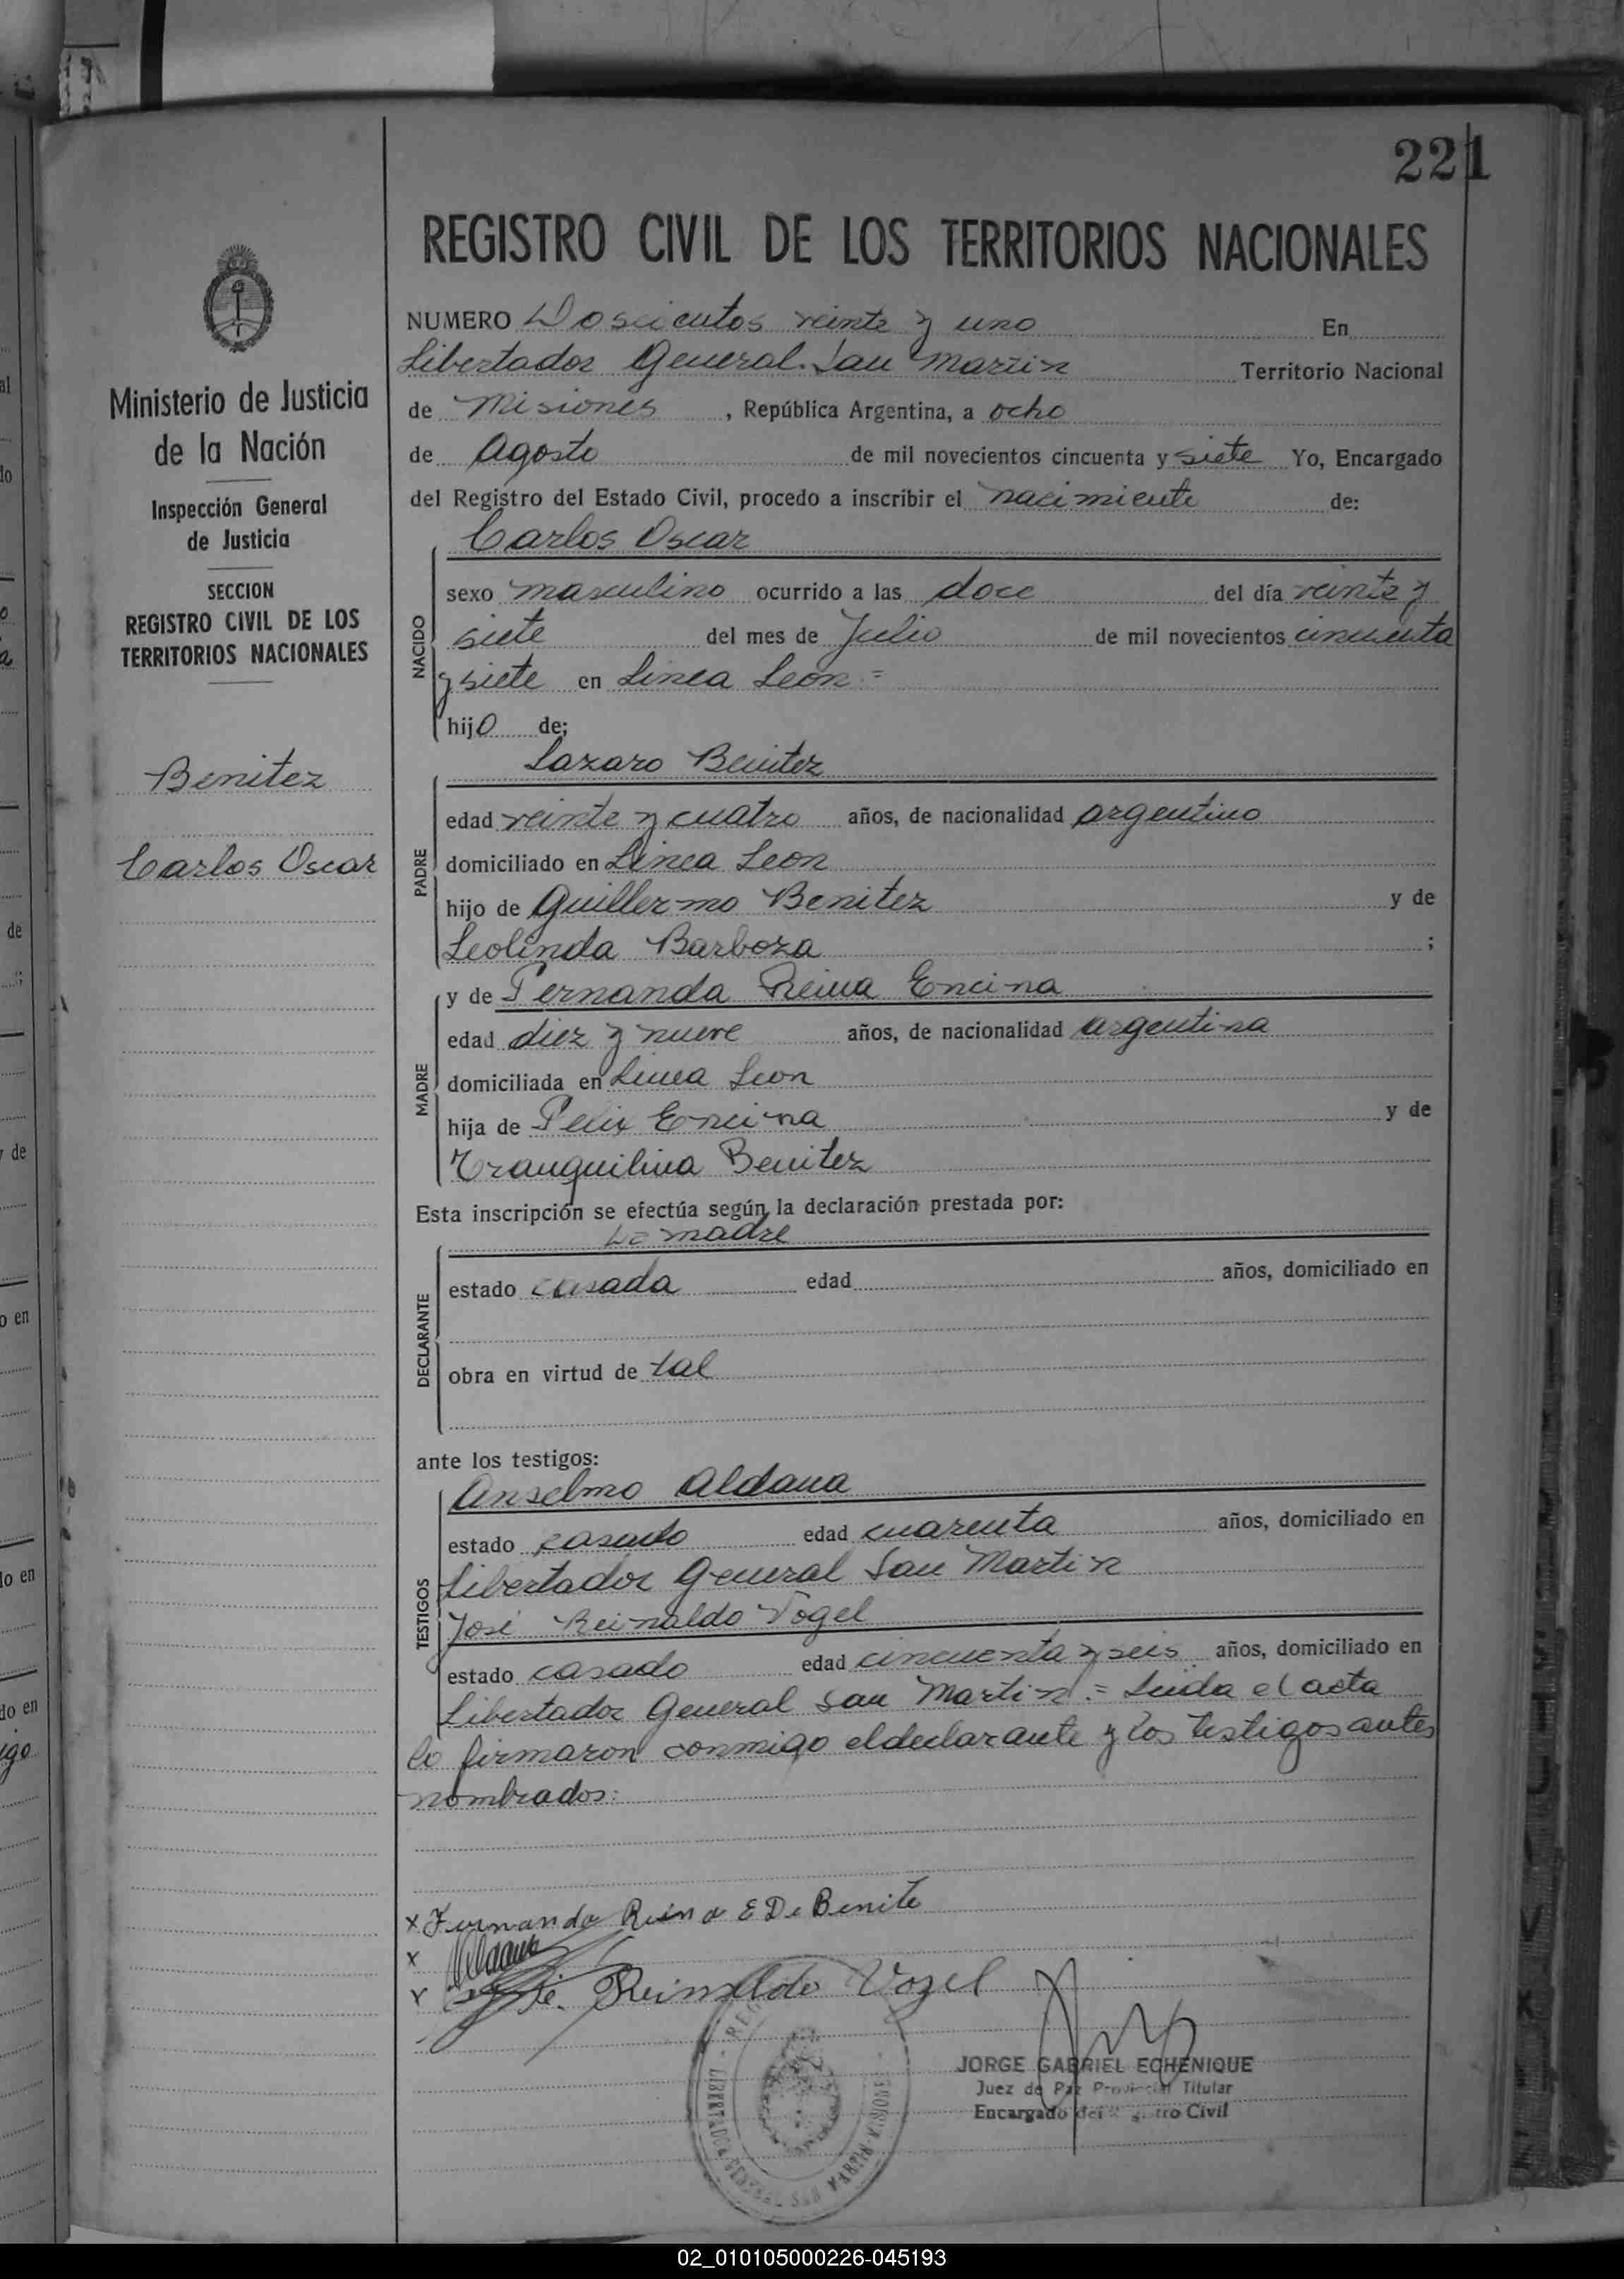 221
REGISTRO CIVIL DE LOS TERRITORIOS NACIONALES
Ministerio de Justicia
de la Nación
Inspección General
de Justicia
SECCION
REGISTRO CIVIL DE LOS
TERRITORIOS NACIONALES
Benitez
Carlos Oscar
NUMERO Doscientos veinte y uno En
Libertador General San Martin Territorio Nacional
de Misiones, República Argentina, a ocho
de Agosto de mil novecientos cincuenta y siete Yo, Encargado
del Registro del Estado Civil, procedo a inscribir el nacimiento de:
Carlos Oscar
NACIDO
sexo masculino ocurrido a las doce del día veinte y
siete del mes de Julio de mil novecientos cincuenta
y siete en Linea Leon =
hijo de;
Lazaro Benitez
PADRE
edad veinte y cuatro años, de nacionalidad argentino
domiciliado en Linea Leon
hijo de Guillermo Benitez y de
Leolinda Barboza ;
MADRE
y de Fernanda Reina Encina
edad diez y nueve años, de nacionalidad argentina
domiciliada en Linea Leon
hija de Felix Encina y de
Tranquilina Benitez
Esta inscripción se efectúa según la declaración prestada por:
La madre
DECLARANTE
estado casada edad años, domiciliado en
obra en virtud de tal
ante los testigos:
Anselmo Aldana
TESTIGOS
estado casado edad cuarenta años, domiciliado en
Libertador General San Martin
José Reinaldo Vogel
estado casado edad cincuenta y seis años, domiciliado en
Libertador General San Martin.= Leida el acta
lo firmaron conmigo el declarante y los testigos antes
nombrados:
x Fernanda Reina E De Benite
x Aldana
x José Reinaldo Vogel
JORGE GABRIEL ECHENIQUE
Juez de Paz Provincial Titular
Encargado del Registro Civil
LIBERTADOR GENERAL SAN MARTIN
02_010105000226-045193